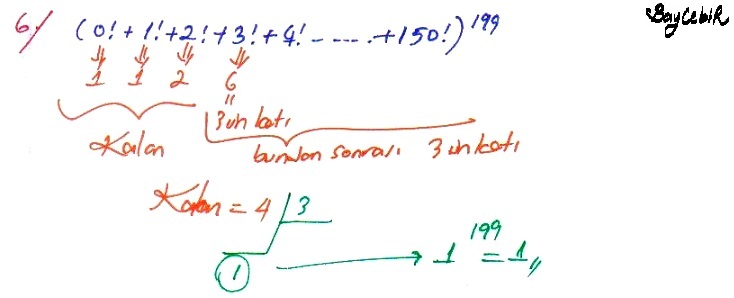 BayCebir
6) (0! + 1! + 2! + 3! + 4! - - - - . + 150!)¹⁹⁹
1 1 2 6
=
3'ün katı
Kalan bundan sonrası 3'ün katı
Kalan = 4 | 3
1 → 1¹⁹⁹ = 1,,